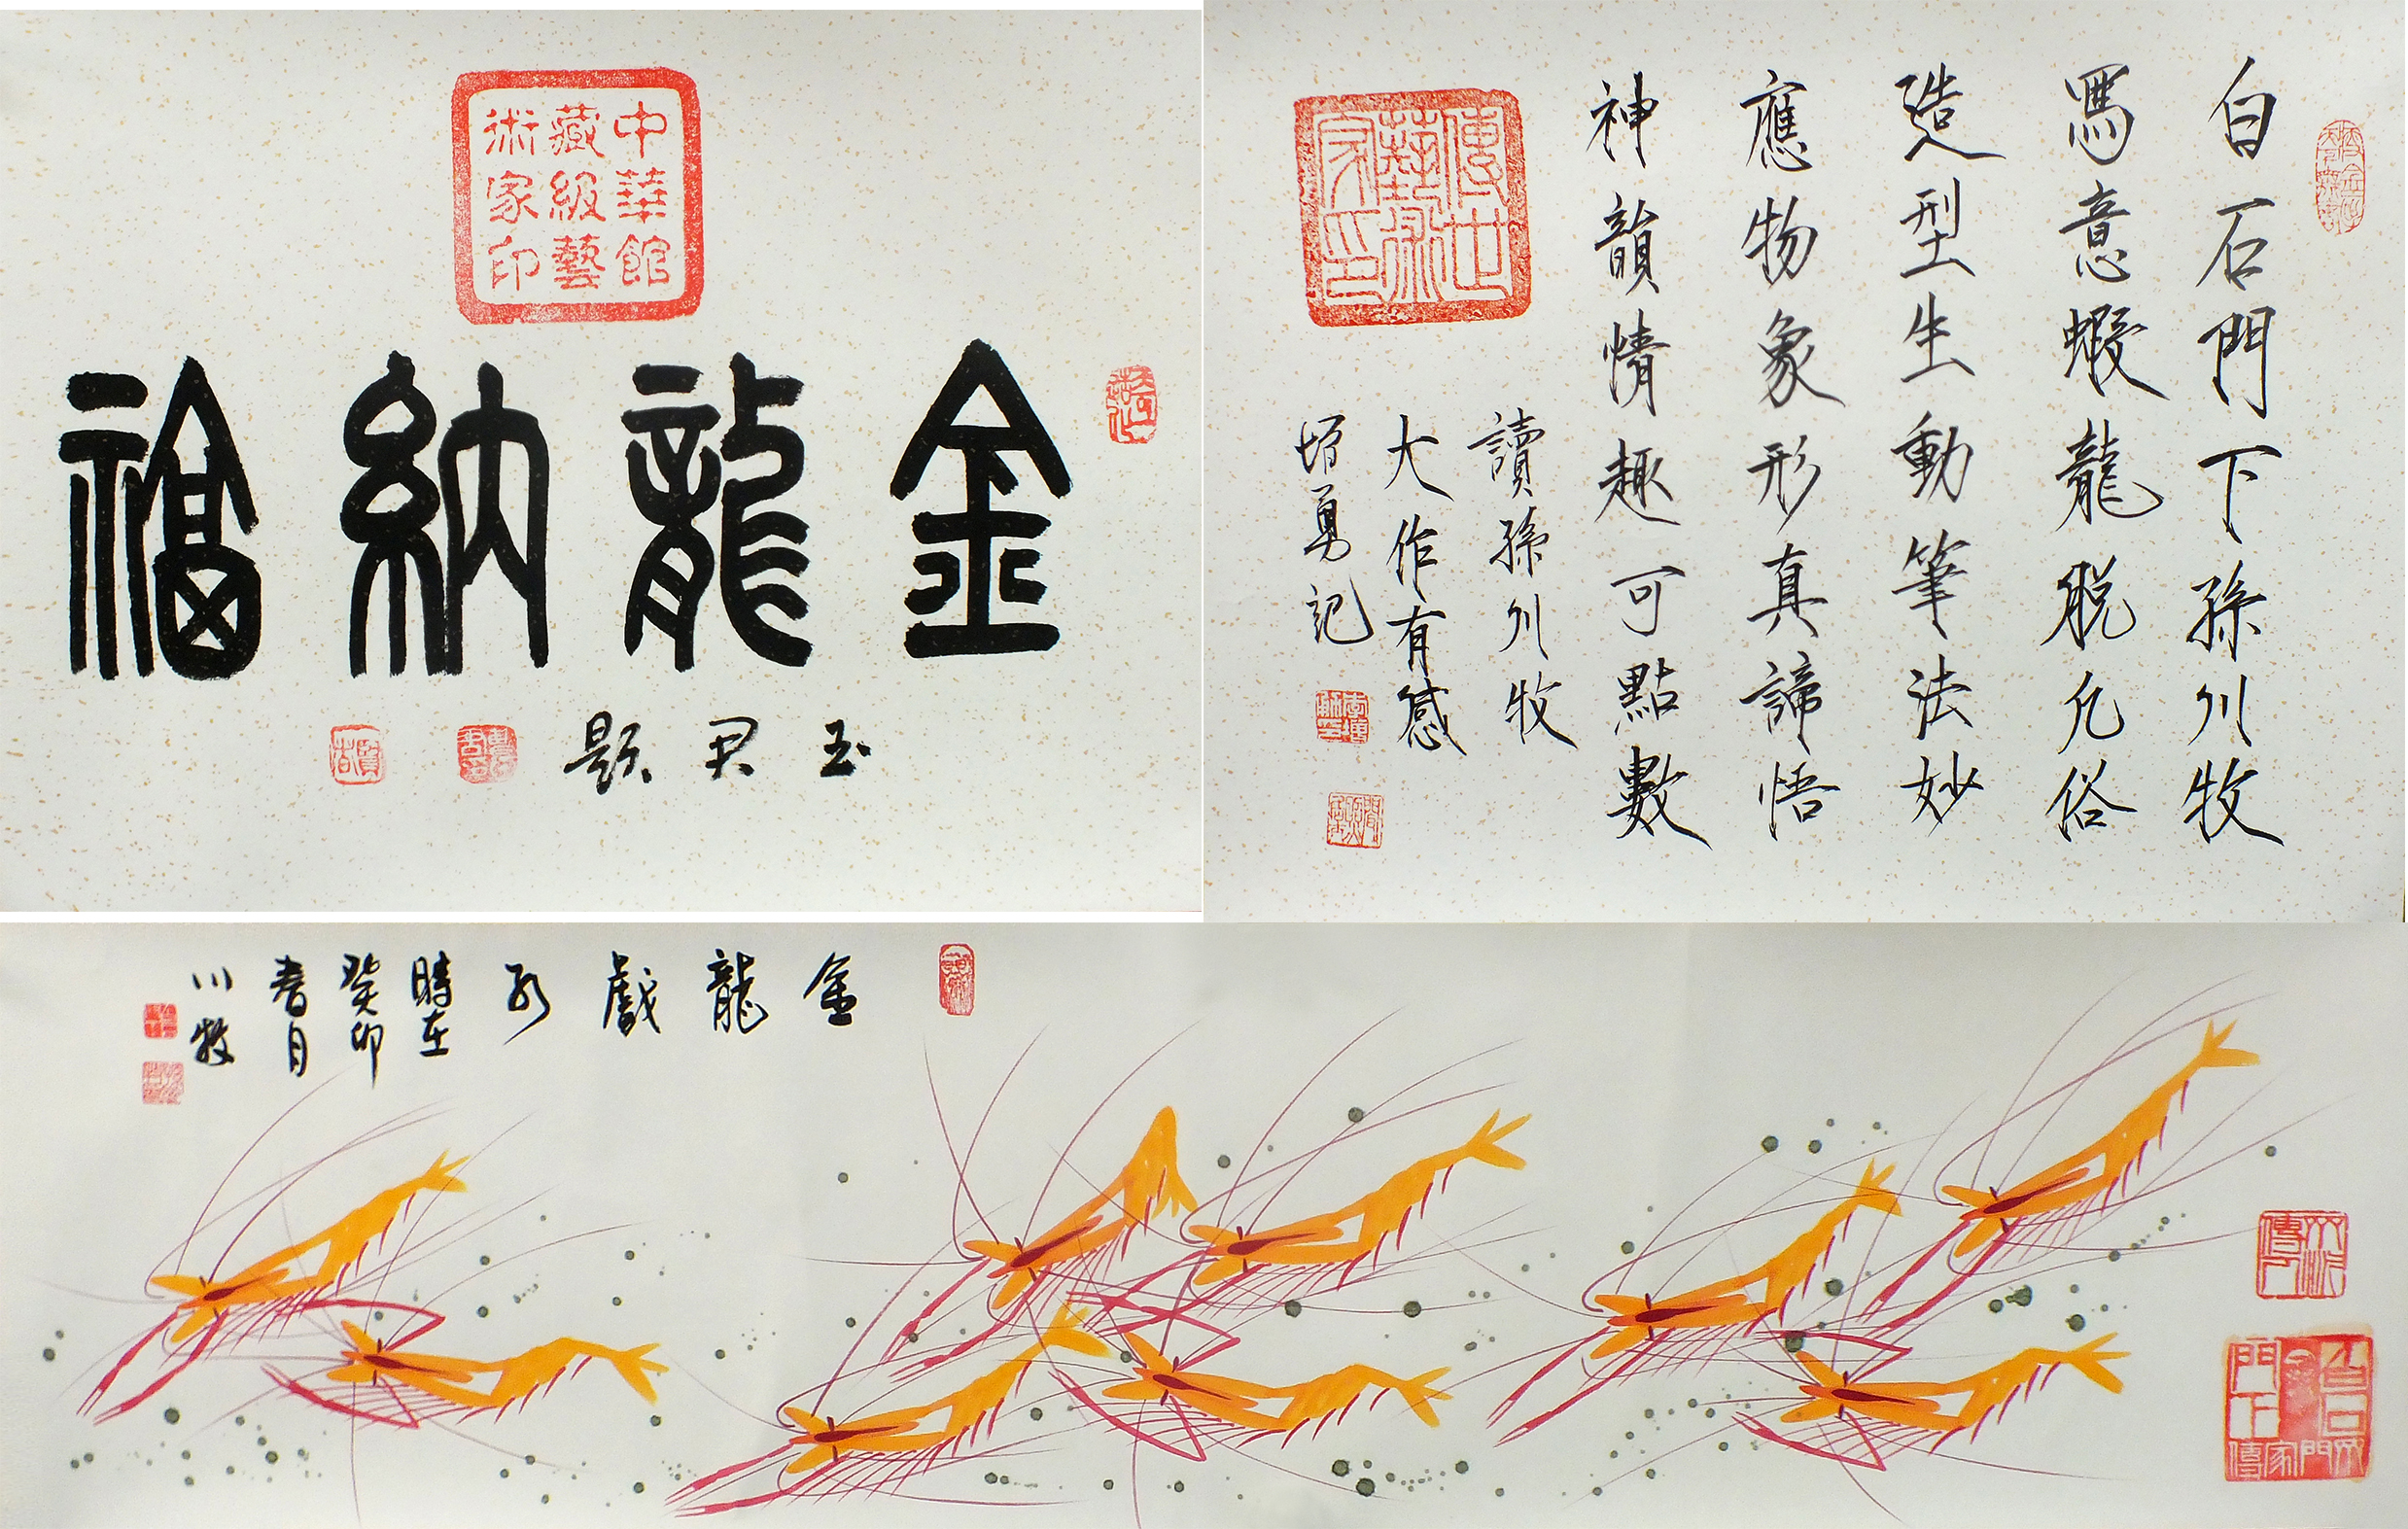 中華館
藏級藝
術家印
金龍納福
玉君題
白石門下孫川牧
寫意蝦龍脱凡俗
造型生動筆法妙
應物象形真諦悟
神韻情趣可點數
讀孫川牧
大作有感
增勇記
傳世
藝術
家印
金龍戲水
時在
癸卯
春月
川牧